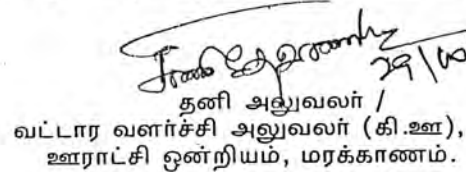 29\
தனி அலுவலர் /
வட்டார வளர்ச்சி அலுவலர் (கி.ஊ),
ஊராட்சி ஒன்றியம், மரக்காணம்.